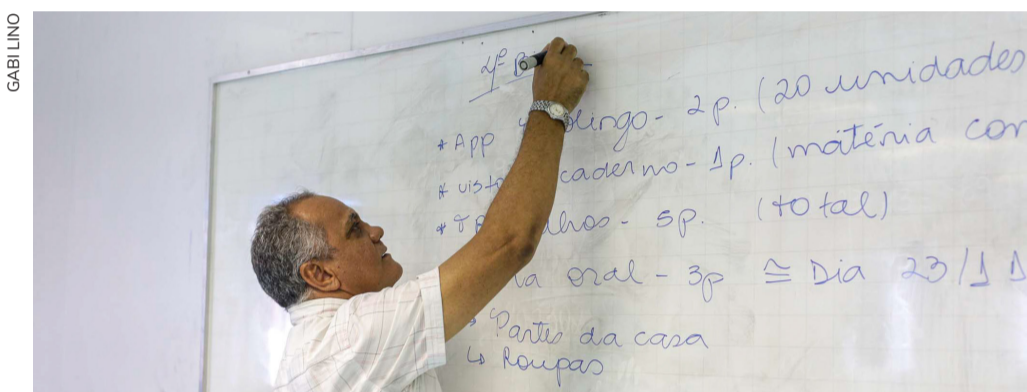 GABI LINO
4º B
* App lingo - 2p. (20 unidades
* visto caderno - 1p. (matéria com
* T lhos - 5p. (total)
la oral - 3p ≅ Dia 23/11
↳ Partes da casa
↳ Roupas